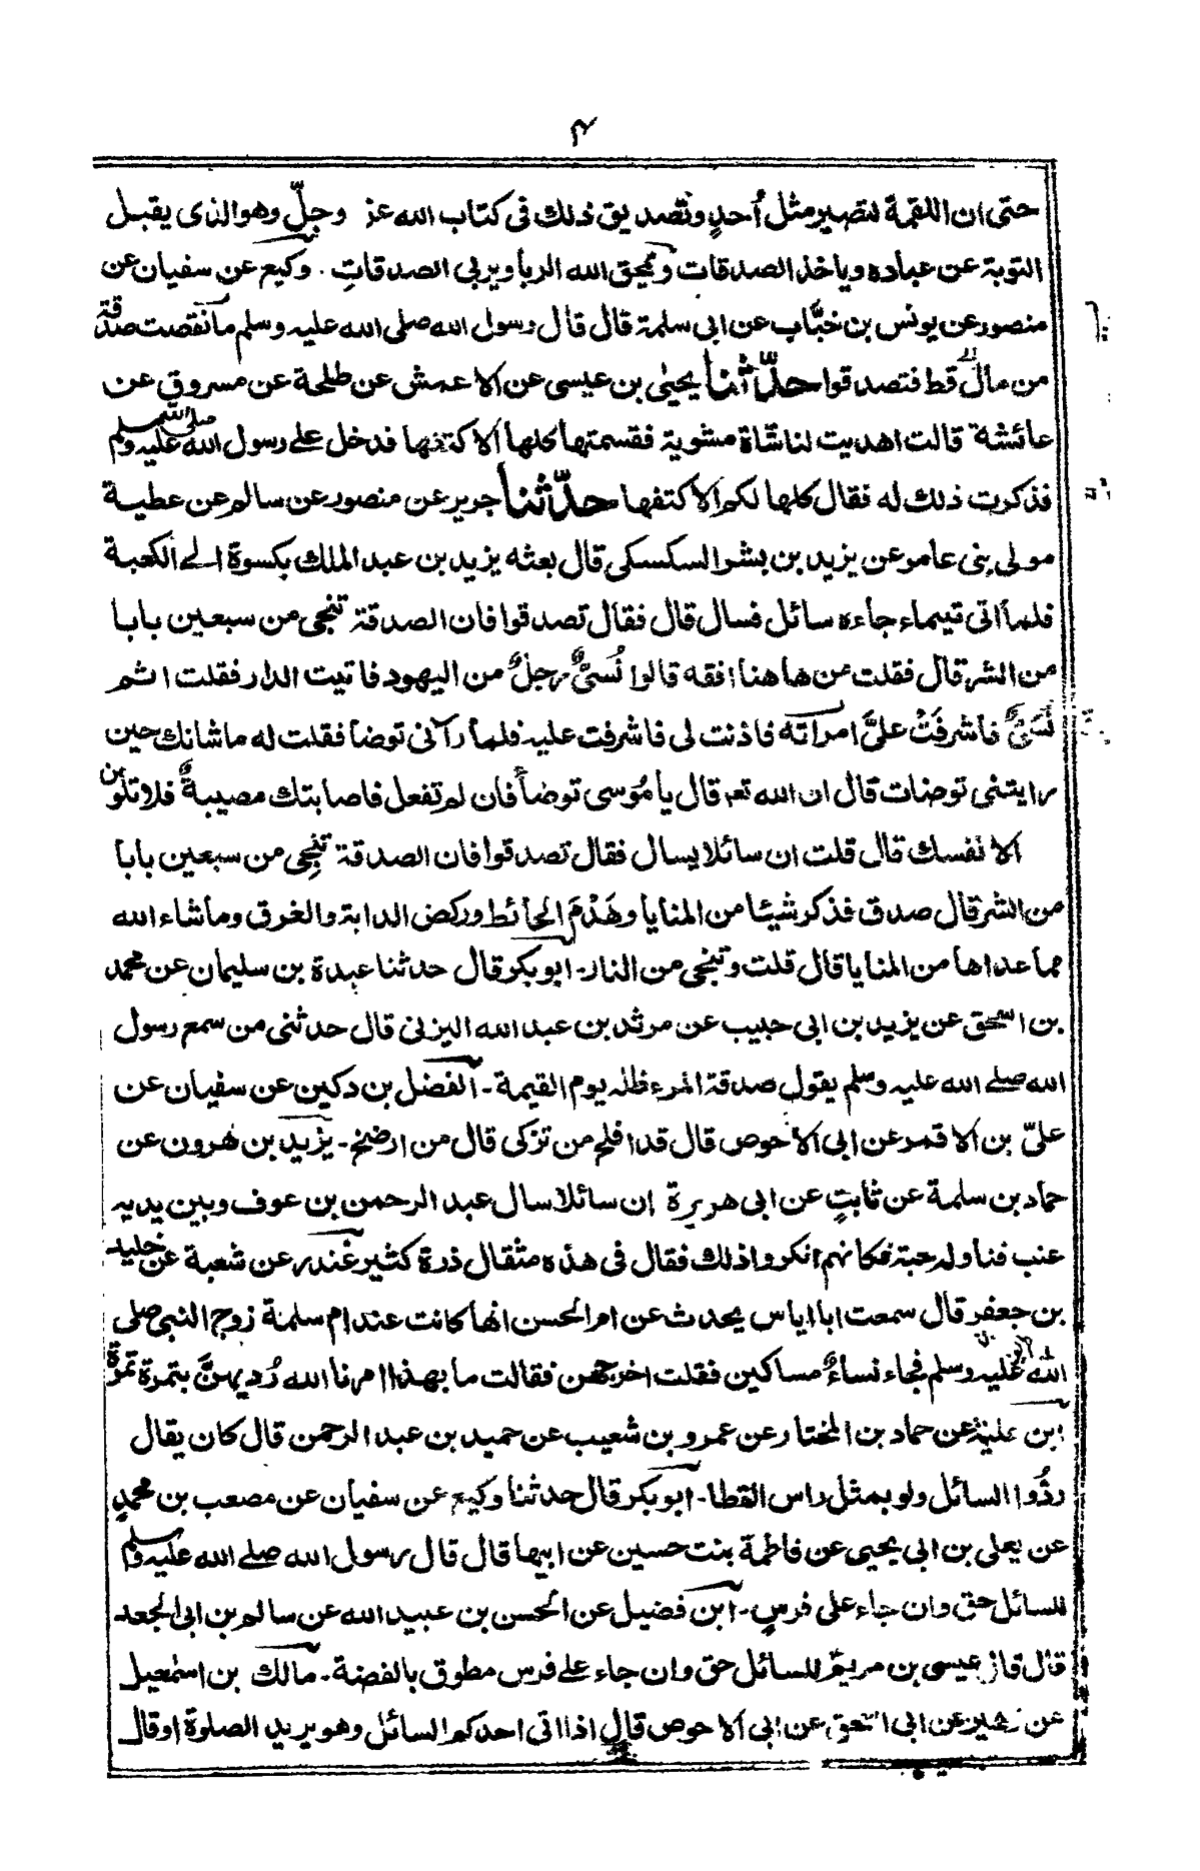 ٣
حتى ان اللقمة لتصير مثل أحدٍ وتصديق ذلك فى كتاب الله عز وجلّ وهو الذى يقبل
التوبة عن عباده وياخذ الصدقات ويمحق الله الربا ويربى الصدقاتِ . وكيع عن سفيان عن
منصور عن يونس بن خبَّاب عن ابى سلمة قال قال رسول الله صلى الله عليه وسلم ما نقصت صدقة
من مال قط فتصدقوا حدّثنا يحيٰى بن عيسى عن الاعمش عن طلحة عن مسروق عن
عائشة قالت اهديت لنا شاة مشوية فقسمتها كلها الا كتفها فدخل على رسول الله صلى الله عليه وسلم
فذكرت ذلك له فقال كلها لكم الا كتفها حدّثنا جرير عن منصور عن سالم عن عطية
مولى بنى عامر عن يزيد بن بشر السكسكى قال بعثه يزيد بن عبد الملك بكسوة الى الكعبة
فلما اتى تيماء جاءه سائل فسال قال فقال تصدقوا فان الصدقة تنجى من سبعين بابا
من الشر قال فقلت من هاهنا افقه قالوا نُسَىٌّ رجلٌ من اليهود فاتيت الدار فقلت اثم
نُسَىٌّ فاشرفَتْ علىَّ امراته فاذنت لى فاشرفت عليه فلما رآنى توضا فقلت له ما شانك حين
رايتنى توضات قال ان الله تعہ قال يا مُوسى توضأ فان لم تفعل فاصابتك مصيبةٌ فلا تلومن
الا نفسك قال قلت ان سائلا يسال فقال تصدقوا فان الصدقة تنجِى من سبعين بابا
من الشر قال صدق فذكر شيئا من المنايا وهَدْمَ الحائط وركض الدابة والغرق وما شاء الله
مما عداها من المنايا قال قلت وتنجى من النار۔ ابو بكر قال حدثنا عبدة بن سليمان عن محمد
بن اسحٰق عن يزيد بن ابى حبيب عن مرثد بن عبد الله اليزنى قال حدثنى من سمع رسول
الله صلے الله عليه وسلم يقول صدقة المرء ظله يوم القيمة۔ الفضل بن دكين عن سفيان عن
علىّ بن الاقمر عن ابى الاحوص قال قد افلح من تزكى قال من ارضخ۔ يزيد بن هٰرون عن
حماد بن سلمة عن ثابتٍ عن ابى هريرة ان سائلا سال عبد الرحمن بن عوف وبين يديه
عنب فناوله حبة فكانهم انكروا ذلك فقال فى هذه مثقال ذرة كثير غندر عن شعبة عن خليد
بن جعفر قال سمعت ابا اياس يحدث عن ام الحسن انها كانت عند ام سلمة زوج النبى صلى
الله عليه وسلم فجاء نساءٌ مساكين فقلت اخرجهن فقالت ما بهذا امرنا الله رُديهنَّ بتمرة تمرة
ابن علية عن حماد بن المختار عن عمرو بن شعيب عن حميد بن عبد الرحمن قال كان يقال
ردُّوا السائل ولو بمثل راس القطا۔ ابو بكر قال حدثنا وكيع عن سفيان عن مصعب بن محمدٍ
عن يعلى بن ابى يحيى عن فاطمة بنت حسين عن ابيها قال قال رسول الله صلے الله عليه وسلم
للسائل حق وان جاء على فرسٍ۔ ابن فضيل عن الحسن بن عبيد الله عن سالم بن ابى الجعد
قال قال عيسى بن مريم للسائل حق وان جاء علے فرس مطوق بالفضة۔ مالك بن اسمٰعيل
عن زهير عن ابى اسحٰق عن ابى الاحوص قال اذا اتى احدكم السائل وهو يريد الصلوة او قال